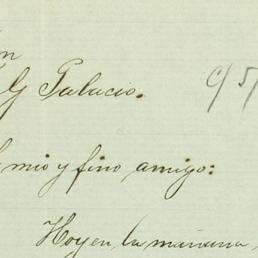 G Palacio.
mio y fino amigo:
Hoy en la mañana,